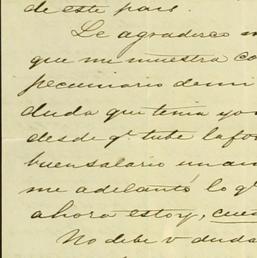 de este pais.
Le agradezco
que me muestra co
pecuniario de mi
duda que tenia yo
desde q. tube la for
buen salario un am
me adelantó lo q
ahora estoy, cuen
No debe v duda